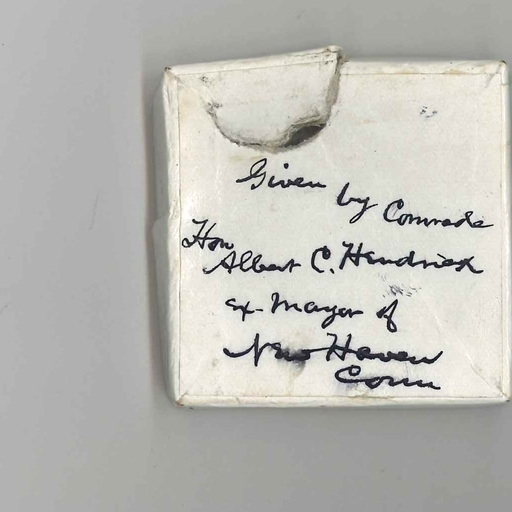 Given by Comrade
Hon
Albert C. Hendrick
ex-Mayor of
New Haven
Conn